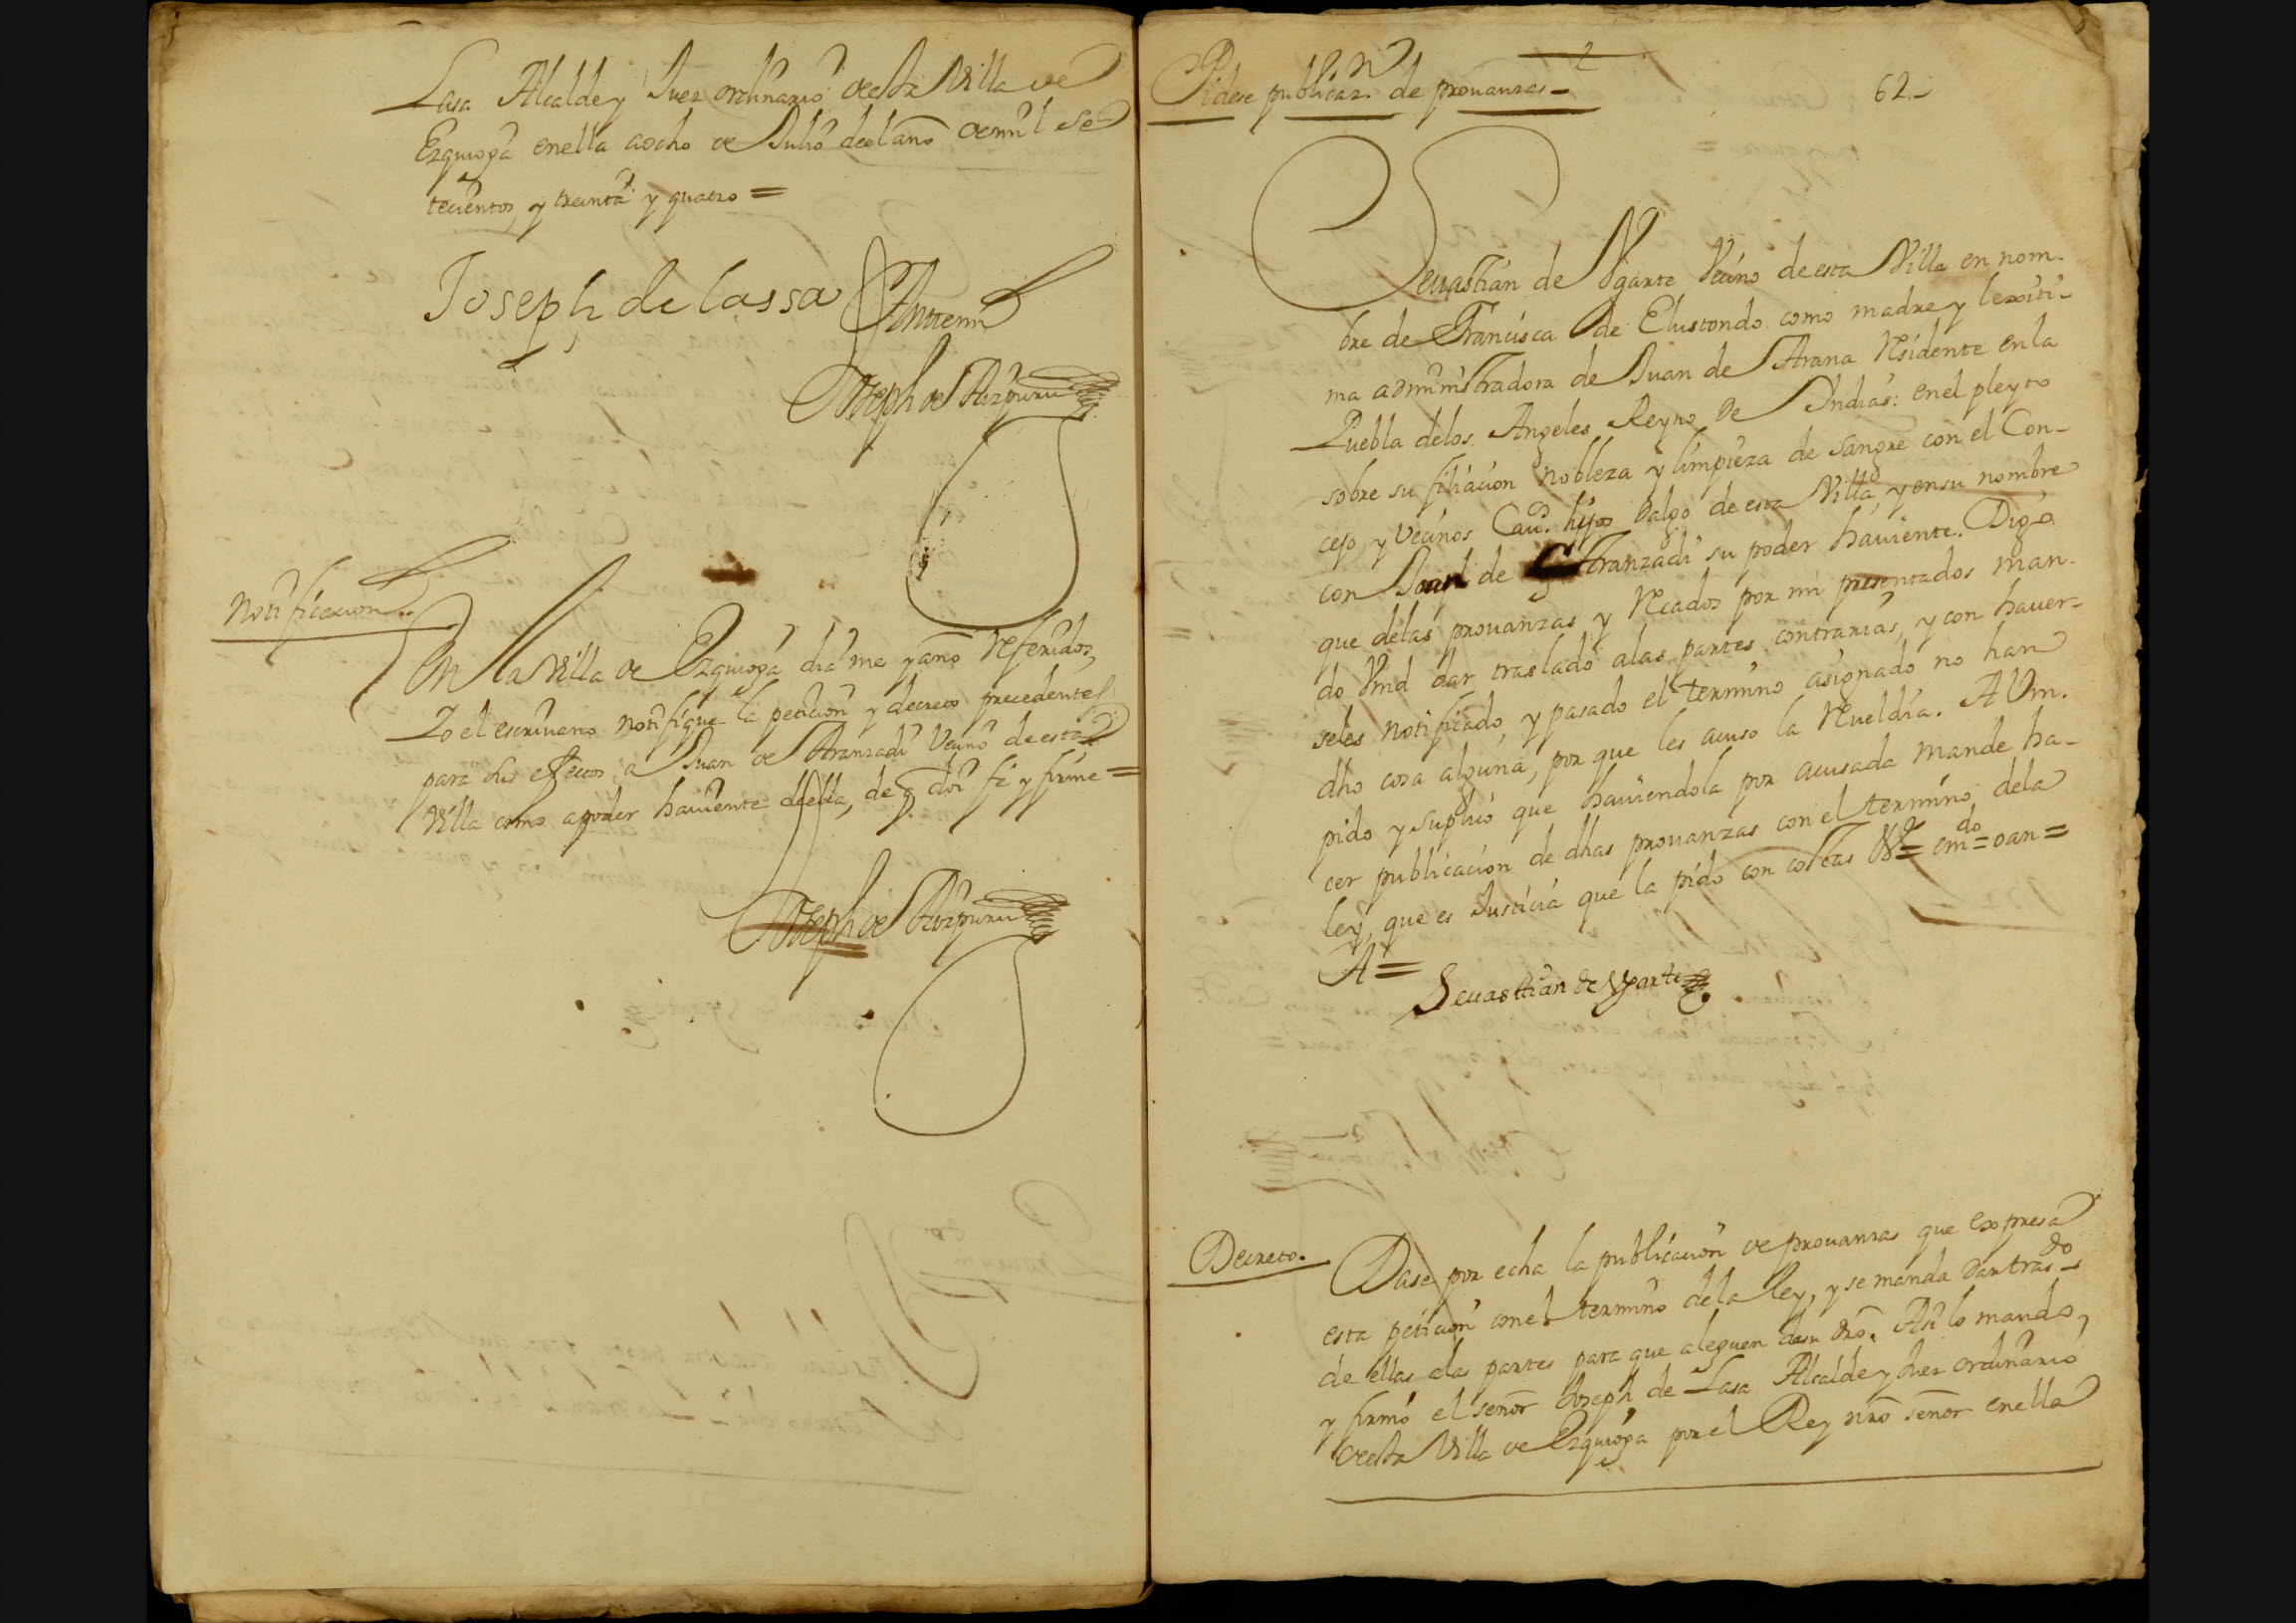 Lasa Alcalde y Juez ordinario desta Villa de
Ezquioga enella aocho de Julio deel año demil se
tecientos, y treinta y quatro =
Joseph de Lassa
Antemi
Joseph de Aizpuru
Notificacion..
En la Villa de Ezquioga dia mes y año referidos,
Yo el escrivano notifique la peticion y decreto precedentes
para sus efectos, a Juan de Aranzadi Vecino de esta
Villa como apoder haviente deella, de q doi fe y firme =
Joseph de Aizpuru
Pidese publicaz.n de provanzas –
62.–
Sevastian de Vgarte Vecino de esta Villa en nom-
bre de Francisca de Elustondo como madre y lexiti-
ma administradora de Juan de Arana Residente en la
Puebla delos Angeles Reyno de Indias: enel pleyto
sobre su filiacion nobleza y limpieza de sangre con el Con-
cejo, y Vecinos Cavs. hijos dalgo de esta Villa, y en su nombre
con Juan de Aranzadi su poder haviente. Digo
que delas provanzas y Recados por mi presentados man-
do Vmd dar traslado alas partes contrarias, y con haver-
seles notificado, y pasado el termino asignado no han
dho cosa alguna, por que les acuso la Rueldia. A Vm.
pido y suplico que haviendola por acusada mande ha-
cer publicacion de dhas provanzas con el termino dela
ley, que es Justicia que la pido con costas &= em.do= oan =
A =
Sevastian de Vgarte
Decreto.
Dase por echa la publicacion de provanzas que expresa
esta peticion conel termino dela ley, y se manda dar tras-do
de ellas alas partes para que aleguen desu dro. Asi lo mando,
y firmó el señor Joseph de Lasa Alcalde y Juez ordinario
desta Villa de Ezquioga por el Rey nro señor enella